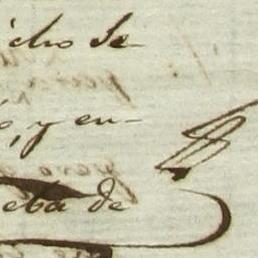 icho Se-
o, y en-
eba de